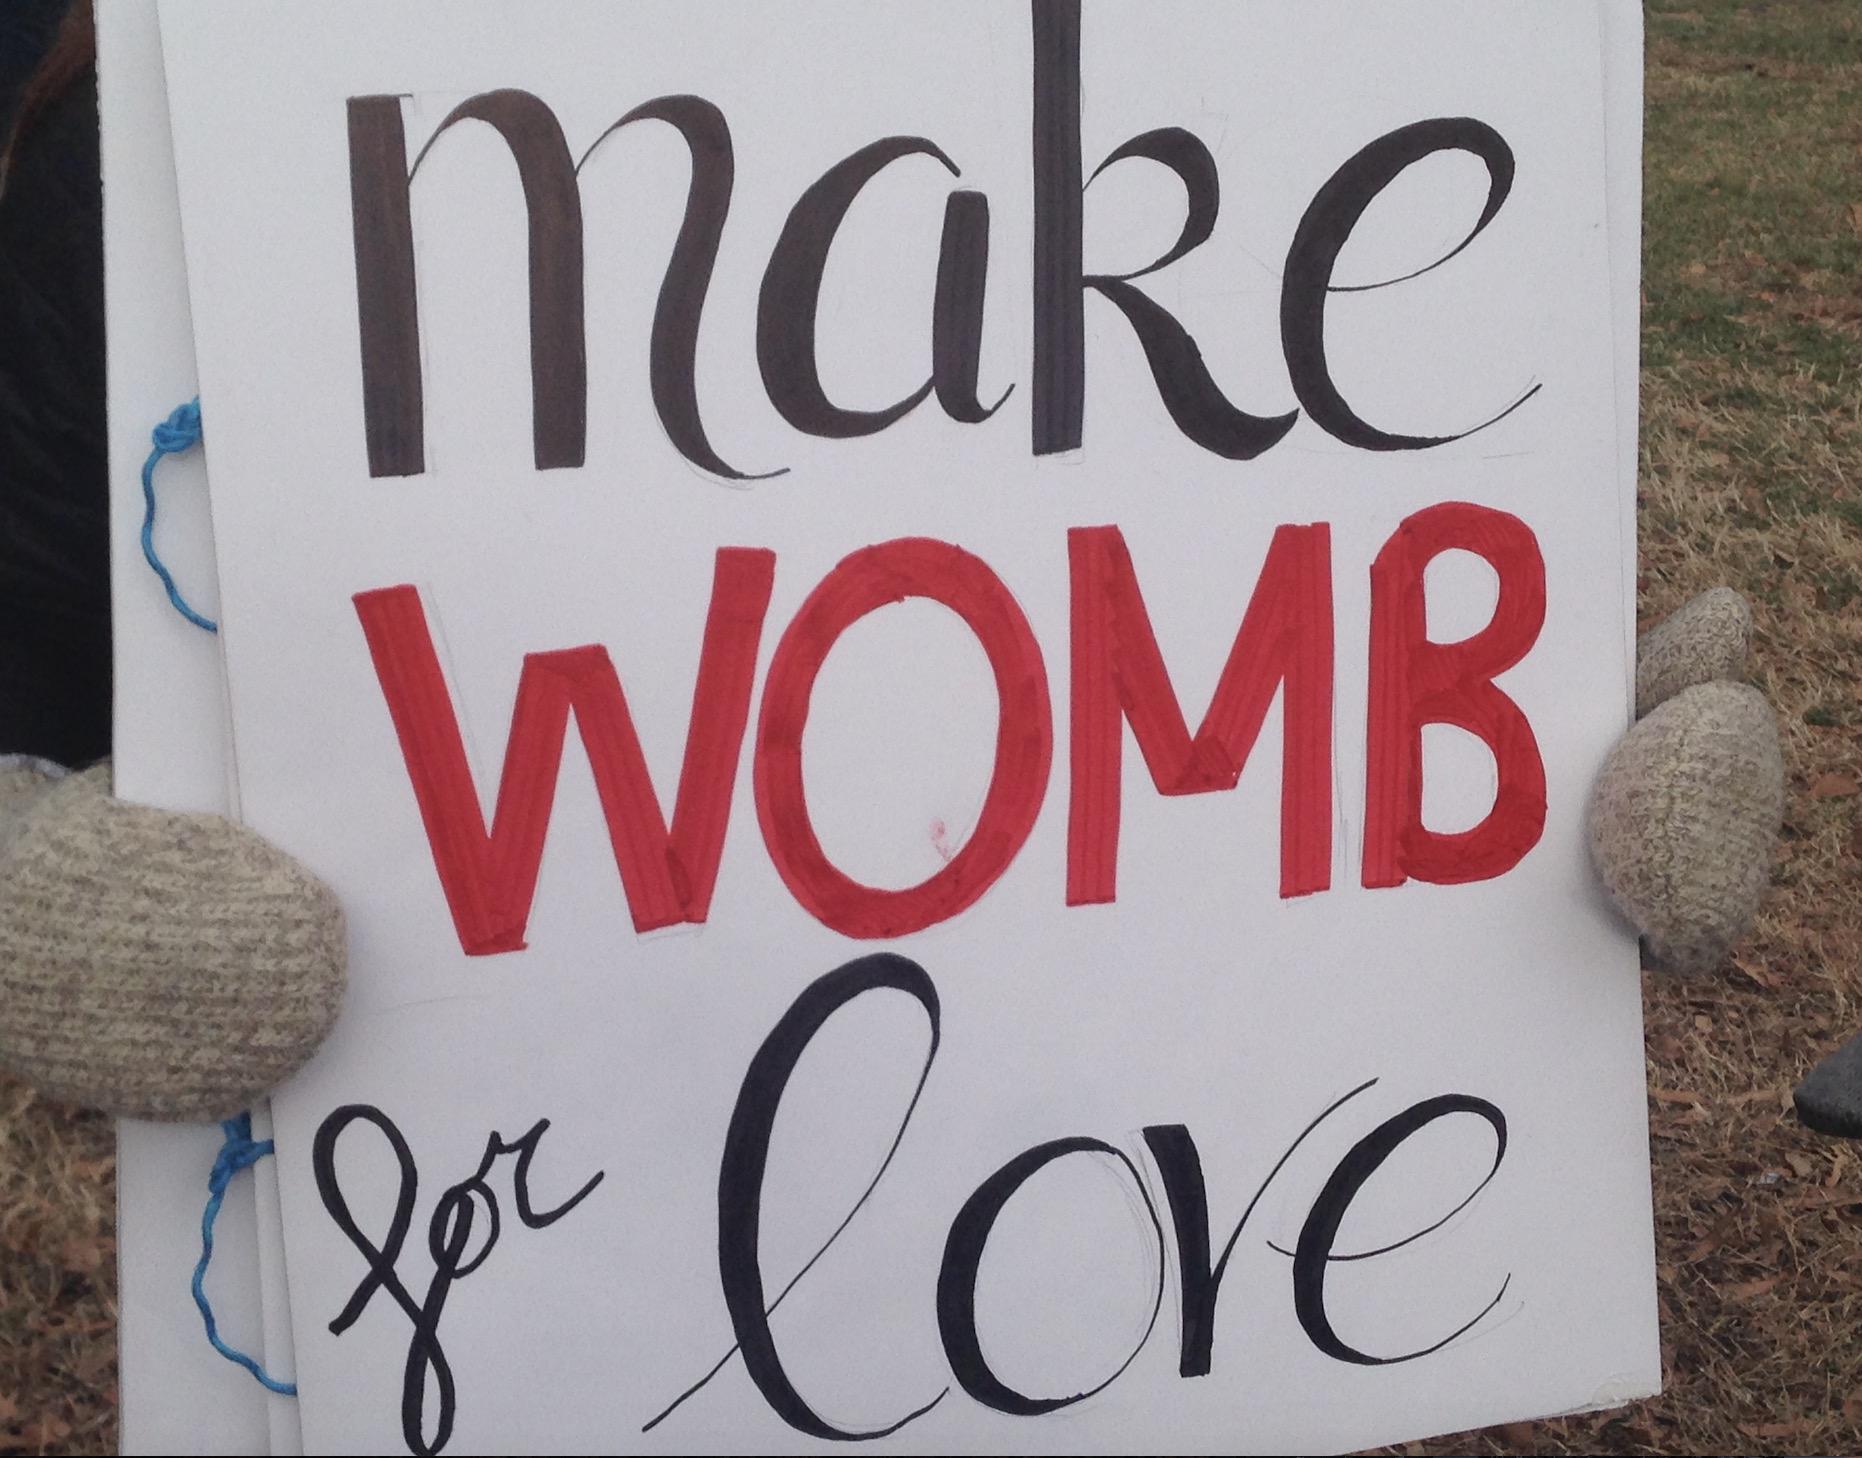 make
WOMB
for love